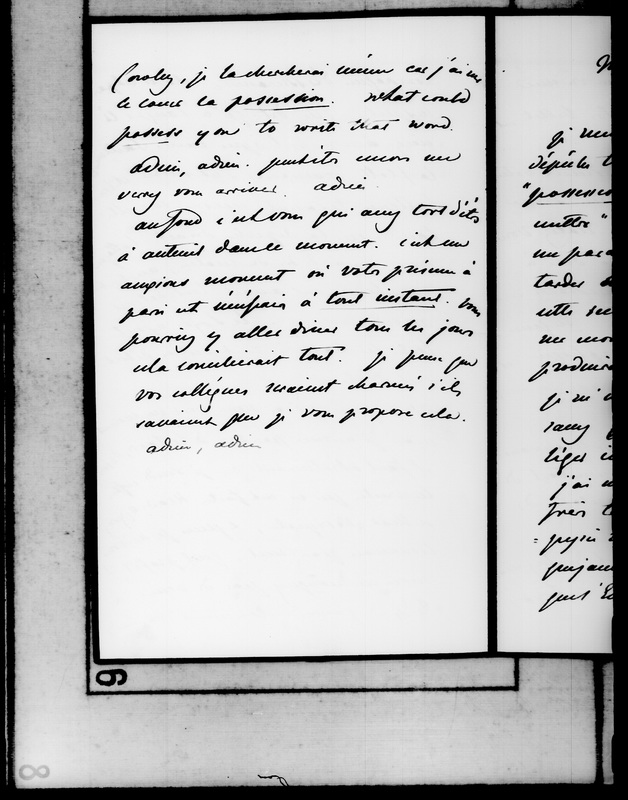 je la chercherai même car j'aime
le cause la possession. What could
possess you to write that word.
adieu, adieu. peut-être encore me
verrez vous arriver. adieu.
au fond c'est vous qui avez tort d'être
à auteuil dans le moment. c'est un
moment où votre présence à
paris est à tout instant. vous
pourriez y aller diner tous les jours
cela concilierait tout. je pense que
vos collègues seraient charmés s'ils
savaient que je vous propose cela.
adieu, adieu
je
député
"possession
mettre"
tarder
cette
ne
je n'a
léger
j'ai
très
9
8